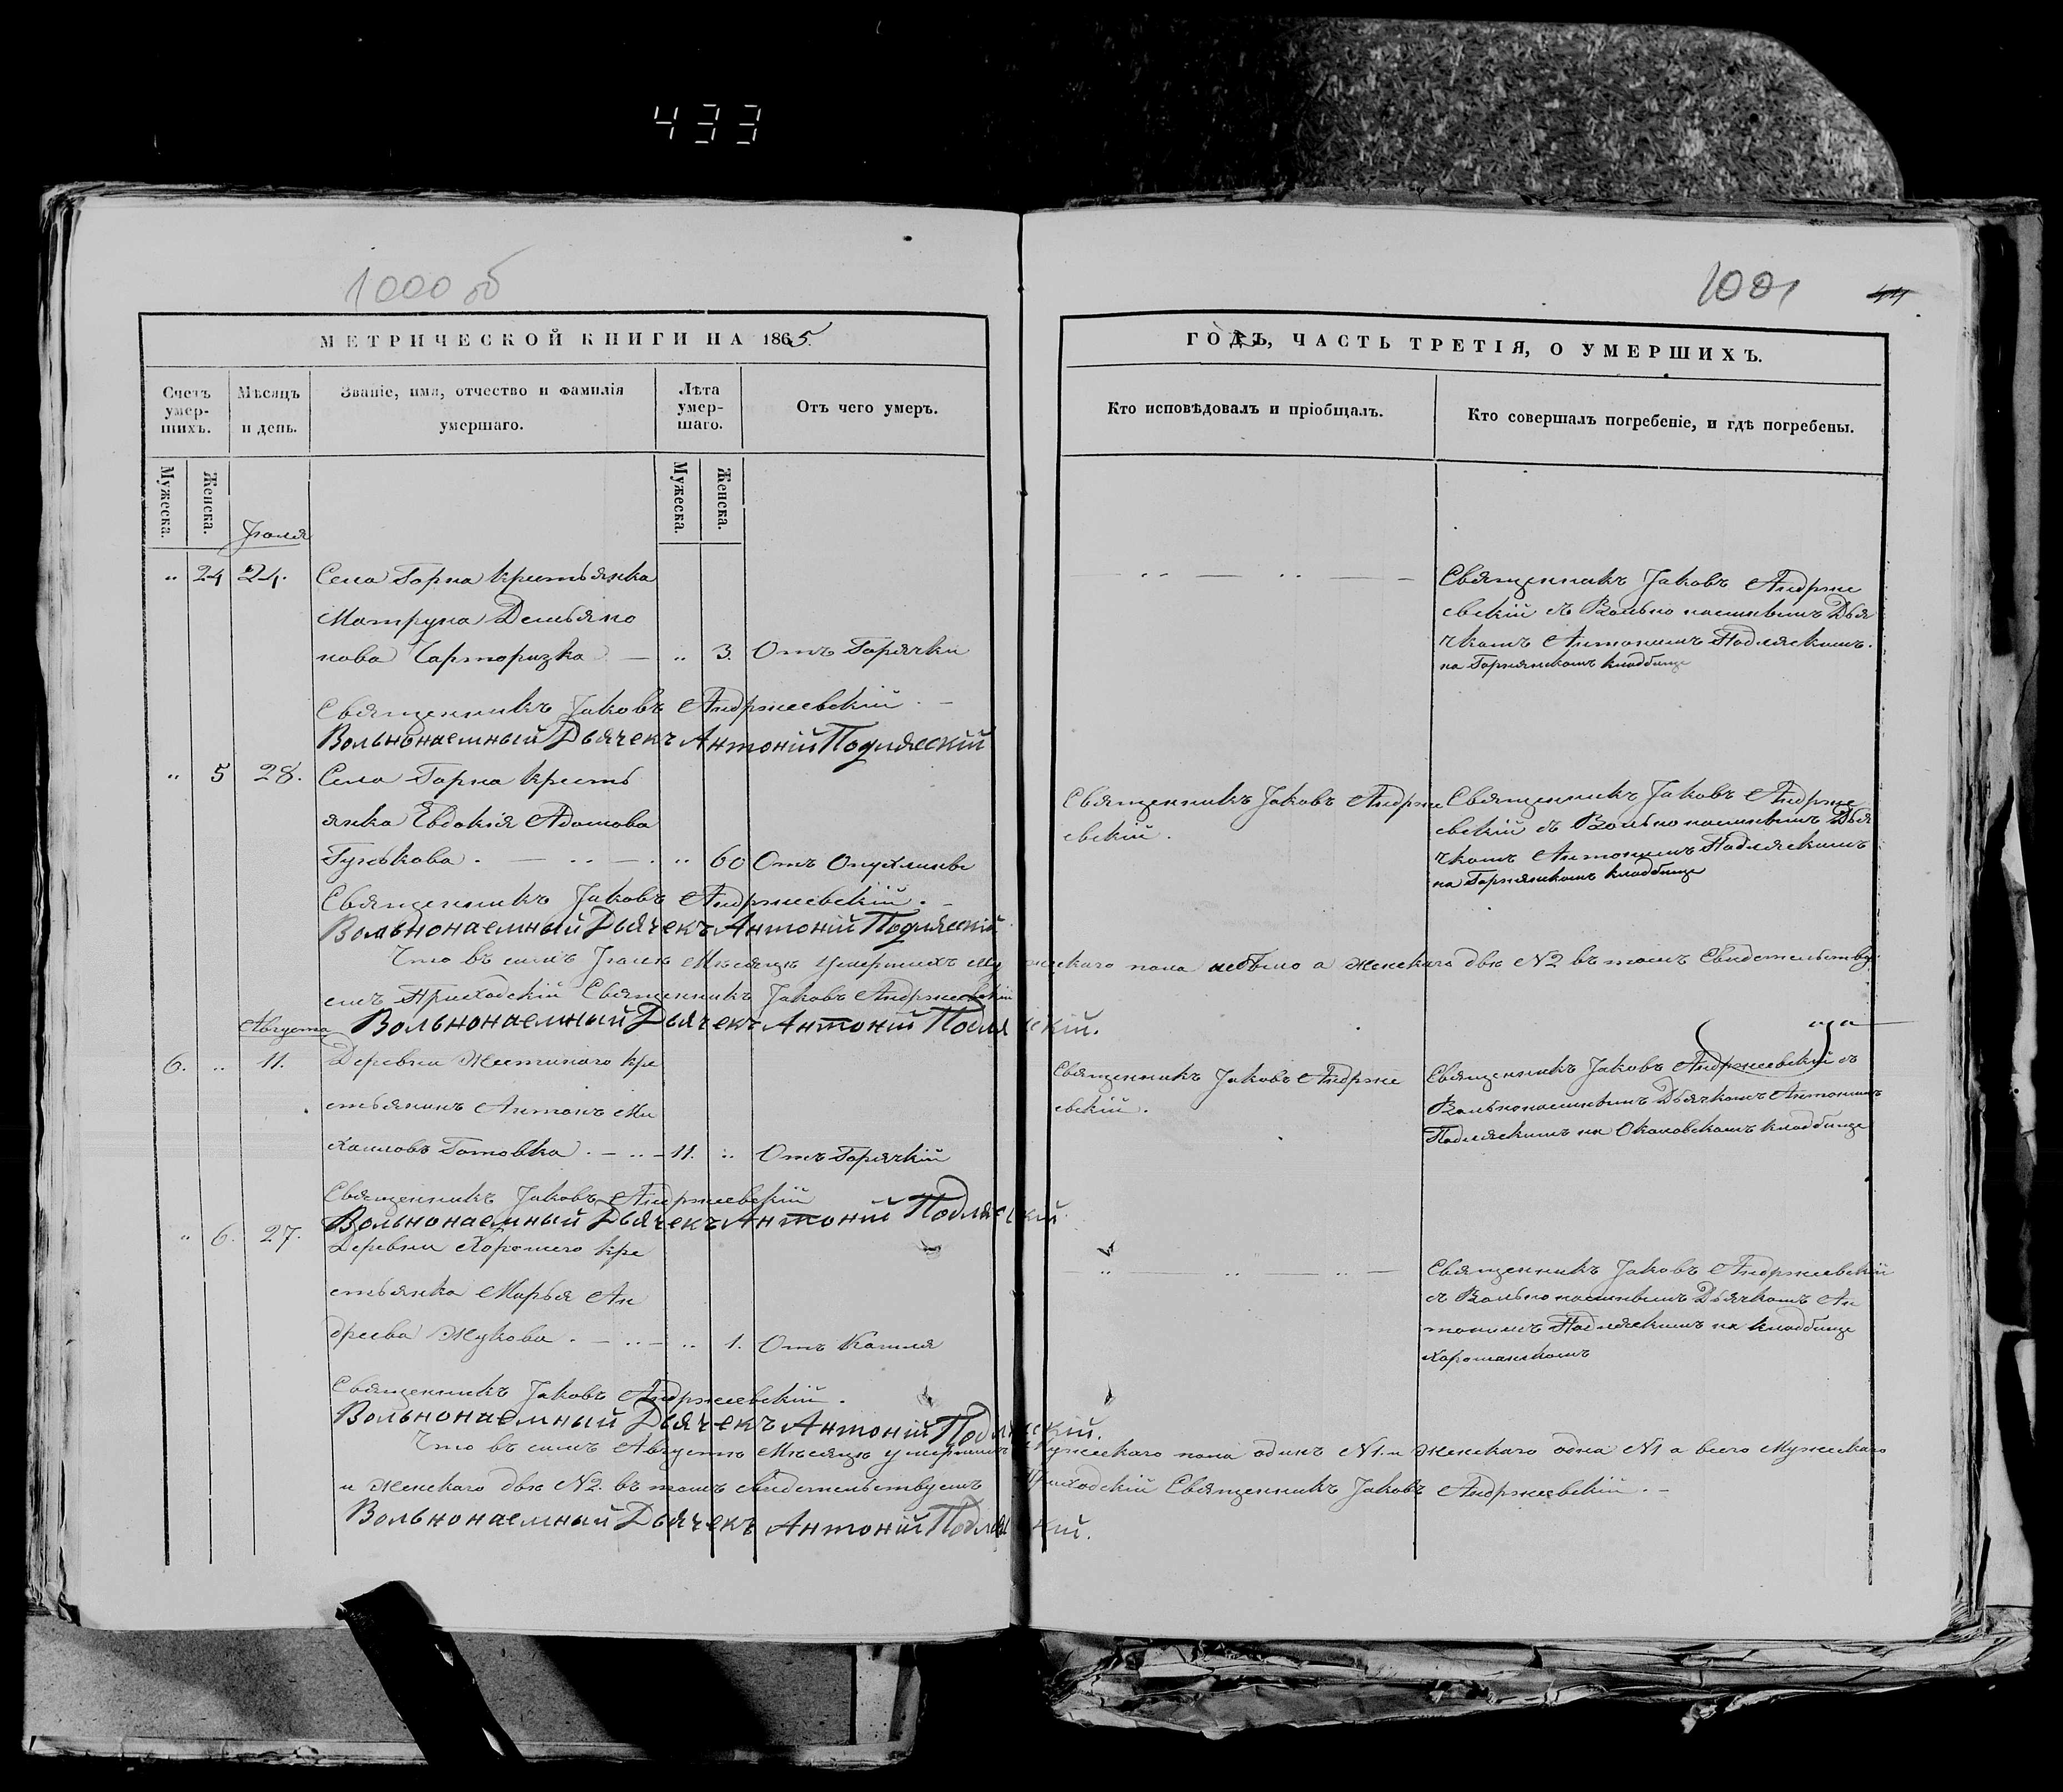 433
1000 об
1001
44
МЕТРИЧЕСКОЙ КНИГИ НА 1865
ГОДЪ, ЧАСТЬ ТРЕТІЯ, О УМЕРШИХЪ.
Счетъ умер-шихъ.
Мѣсяцъ и день.
Званіе, имя, отчество и фамилія умершаго.
Лѣта умер-шаго.
Отъ чего умеръ.
Кто исповѣдовалъ и пріобщалъ.
Кто совершалъ погребеніе, и гдѣ погребены.
Мужеска. Женска.
Мужеска. Женска.
Іюля
" 24 24. Села Горна крестьянка
Матруна Демьяно
нова Чарторизка — " 3. Отъ Горячки
Священникъ Іаковъ Андрже
евскій съ Вольнонаемнымъ Дья
чкомъ Антоніемъ Подляскимъ.
на Горнянскомъ кладбище
Священникъ Іаковъ Андржеевскій. —
Вольнонаемный Дьячекъ Антоній Подляскій
" 5 28. Села Горна кресть
янка Евдокія Адамова
Гунькова. — " — . " 60 Отъ Опухлины
Священникъ Іаковъ Андрже
евскій.
Священникъ Іаковъ Андрже
евскій съ Вольнонаемнымъ Дья
чкомъ Антоніемъ Подляскимъ
на Горнянскомъ кладбище
Священникъ Іаковъ Андржеевскій. —
Вольнонаемный Дьячекъ Антоній Подляскій
Что въ семъ Іюле Мѣсяцѣ умершихъ мужескаго пола небыло а женскаго двѣ №2 въ томъ Свидетельству
емъ Приходскій Священникъ Іаковъ Андржеевскій
Вольнонаемный Дьячекъ Антоній Подляскій.
Августа
6. " 11. Деревни Жестинаго кре
стьянинъ Антонъ Ми
хаиловъ Готовка. — " — 11. " Отъ Горячкій
Священникъ Іаковъ Андрже
евскій.
Священникъ Іаковъ Андржеевскій съ
Вольнонаемнымъ Дьячкомъ Антоніемъ
Подляскимъ на Окаковскомъ кладбище
Священникъ Іаковъ Андржеевскій
Вольнонаемный Дьячекъ Антоній Подляскій
" 6. 27. Деревни Хорошего кре
стьянка Марья Ан
дреева Жукова. — " — " 1. Отъ Кашля
Священникъ Іаковъ Андржеевскій
съ Вольнонаемнымъ Дьячкомъ Ан
тоніемъ Подляскимъ на кладбище
Хорошанскомъ
Священникъ Іаковъ Андржеевскій.
Вольнонаемный Дьячекъ Антоній Подляскій.
Что въ семъ Августѣ Мѣсяцѣ умершихъ Мужескаго пола одинъ №1. и женскаго одна №1 а всего Мужескаго
и женскаго двѣ №2. въ томъ свидетельствуемъ Приходскій Священникъ Іаковъ Андржеевскій. —
Вольнонаемный Дьячекъ Антоній Подляскій.